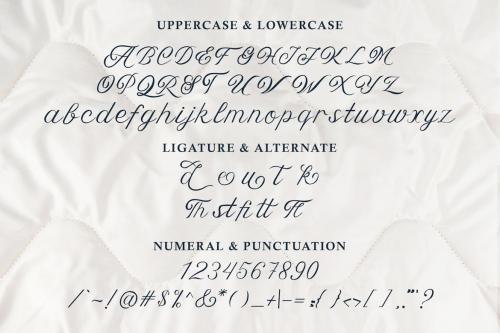 UPPERCASE & LOWERCASE
ABCDEFGHIJKLM
OPQRST UVWXYZ
abcdefghijklmnopqrstuvwxyz
LIGATURE & ALTERNATE
d o u t k
Th st fi tt
NUMERAL & PUNCTUATION
1234567890
/`~!@#$%^&*()_+|-=:{}<>[],."'?